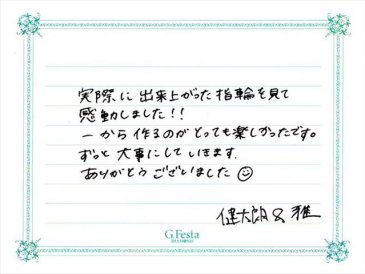 実際に出来上がった指輪を見て
感動しました!!
一から作るのがとっても楽しかったです。
ずっと大事にしていきます.
ありがとうございました☺
健太朗&雅
G.Festa